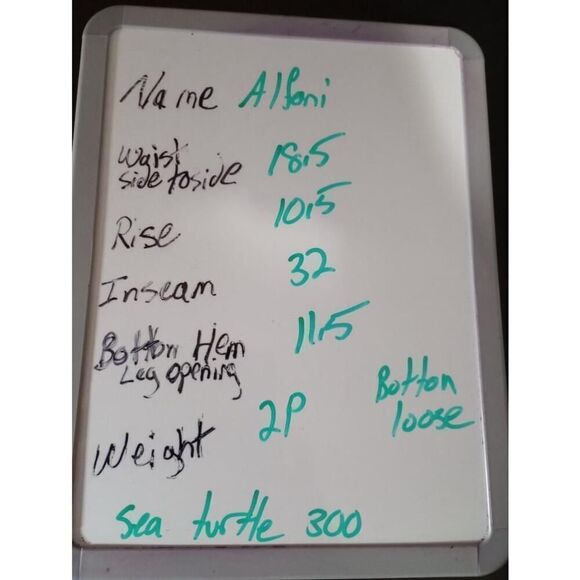 Name Alfani
Waist side to side 18.5
Rise 10.5
Inseam 32
Bottom Hem Leg opening 11.5
Weight 2P
Botton loose
Sea turtle 300